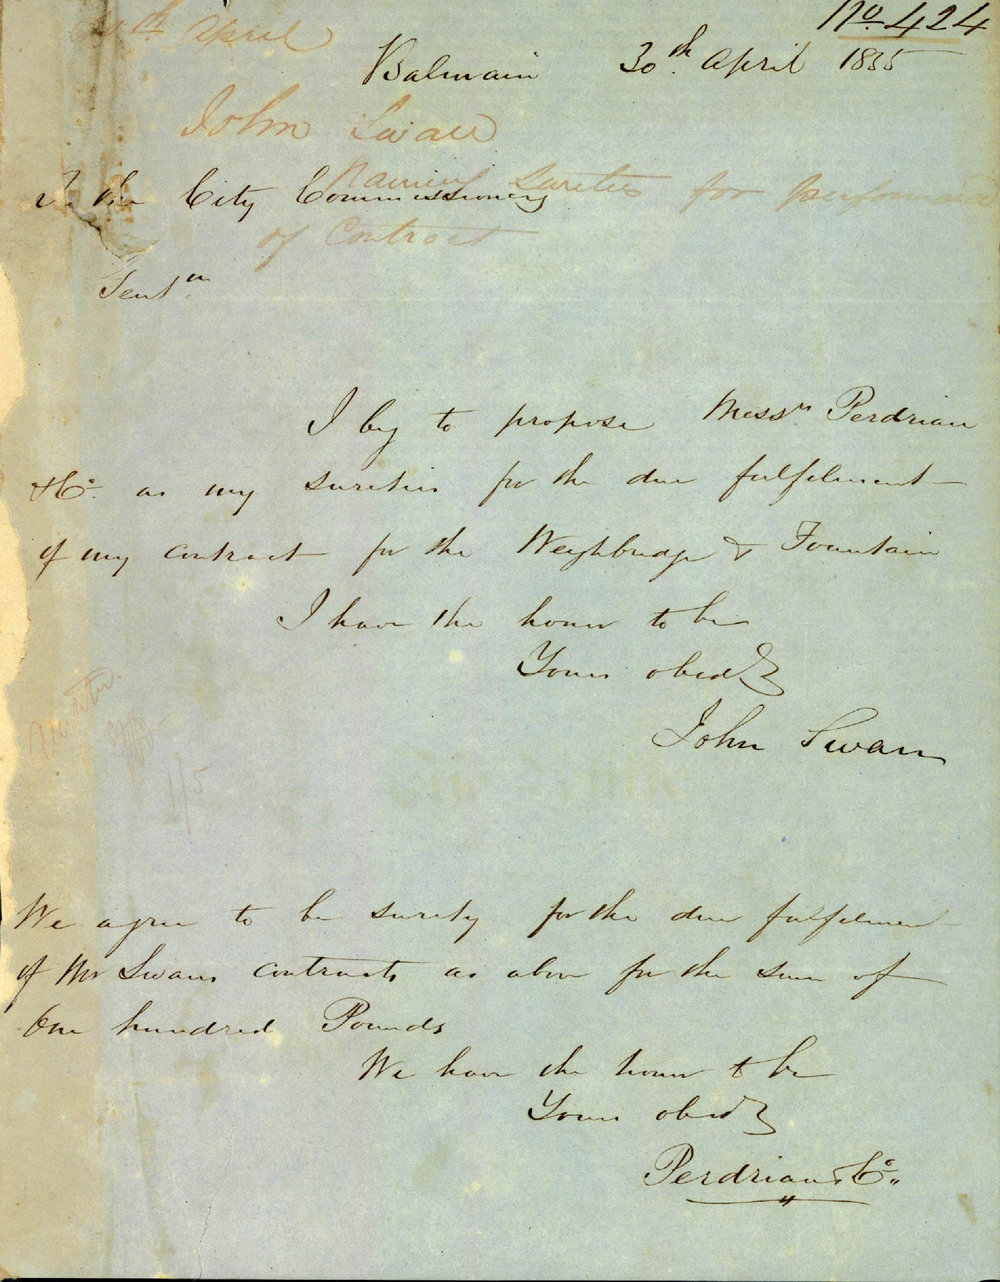 No. 424
30th April
Balmain 30th. April 1855
John Swan
To the City Commissioners
Naming Sureties for performance
of Contract
Gentn
I beg to propose Messrs. Perdriau
& Co. as my sureties for the due fulfilment
of my contract for the Weighbridge & Fountain
I have the honor to be
Yours obed
John Swan
1/5
We agree to be surety for the due fulfilment
of Mr Swans contracts as above for the sum of
One hundred Pounds
We have the honor to be
Yours obed
Perdriau & Co.